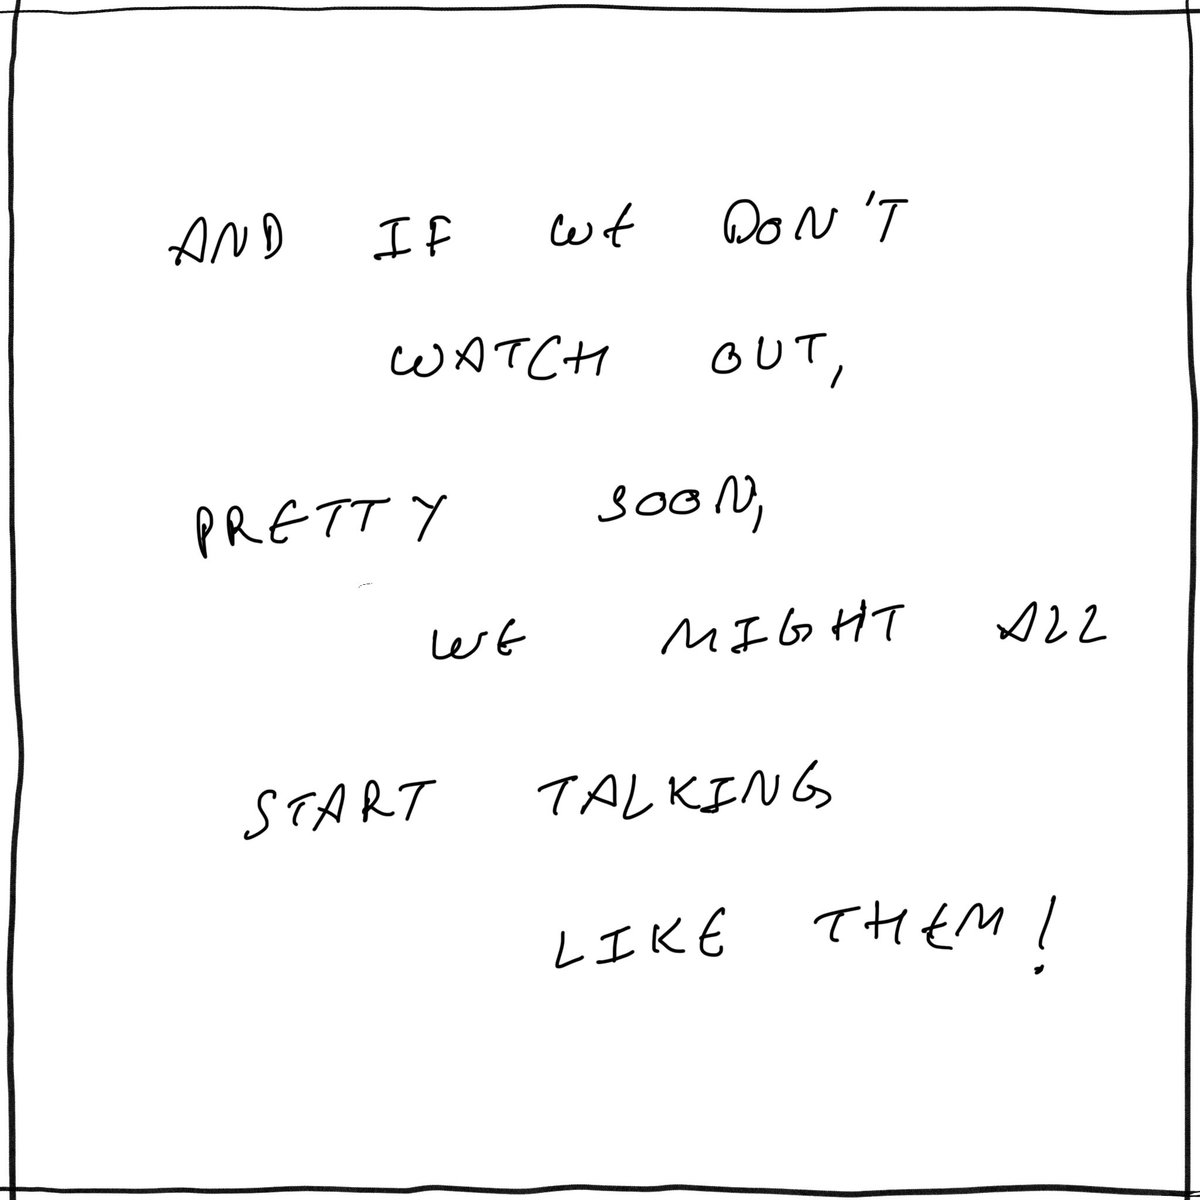 AND IF WE DON'T
WATCH OUT,
PRETTY SOON,
WE MIGHT ALL
START TALKING
LIKE THEM!